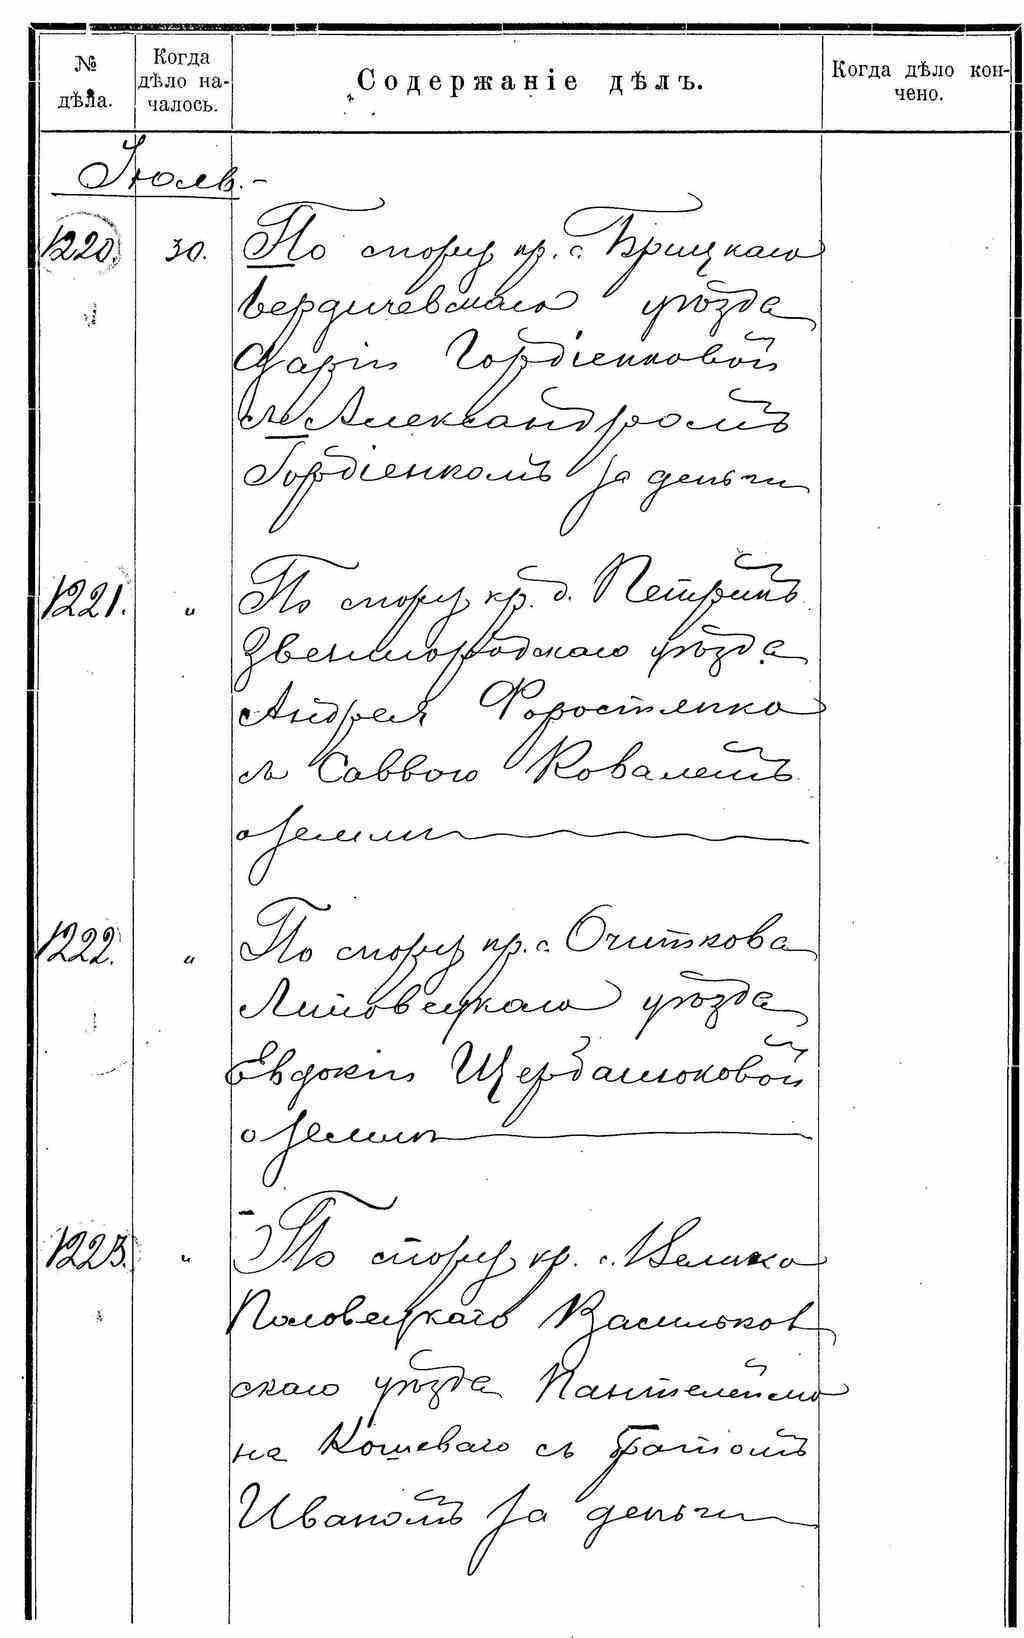 № дѣла. Когда дѣло началось. Содержаніе дѣлъ. Когда дѣло кончено.
Іюль.-
1220. 30. По спору кр. с. Брицкаго
Бердичевскаго уѣзда
Дарьи Гордіенковой
съ Александромъ
Гордіенкомъ за деньги
1221. " По спору кр. д. Петрикъ
Звенигородскаго уѣзда
Андрея Форостянко
съ Саввою Ковалемъ
о земли
1222. " По спору кр. с. Очиткова
Липовецкаго уѣзда
Евдокіи Щербанюковой
о земли
1223. " По спору кр. с. Велико
Половецкаго Васильков
скаго уѣзда Пантелеймо
на Кошеваго съ братомъ
Иваномъ за деньги